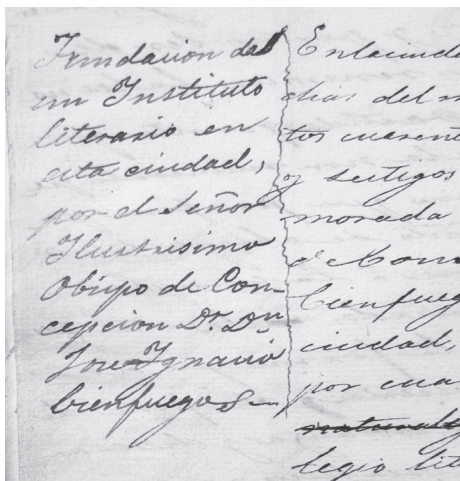 Fundacion de
un Instituto
literario en
esta ciudad,
por el Señor
Ilustrisimo
Obispo de Con-
cepcion Dr. Dn
Jose Ignacio
Cienfuegos—
En la ciuda
dias del m
tos cuarent
y testigos
morada
de Com
Cienfueg
ciudad,
por cua
legio lite